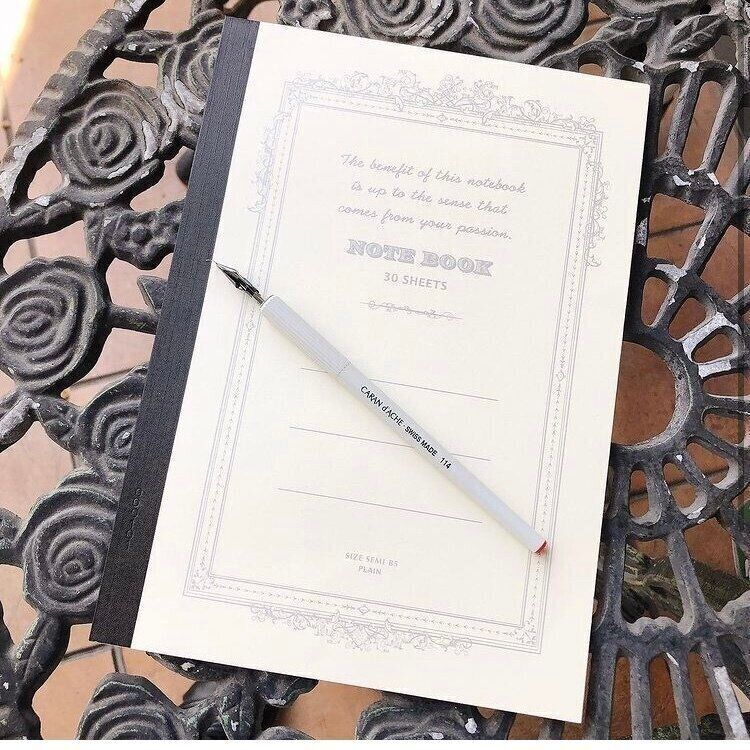 The benefit of this notebook
is up to the sense that
comes from your passion.
NOTE BOOK
30 SHEETS
CARAN d'ACHE SWISS MADE 114
SIZE SEMI B5
PLAIN